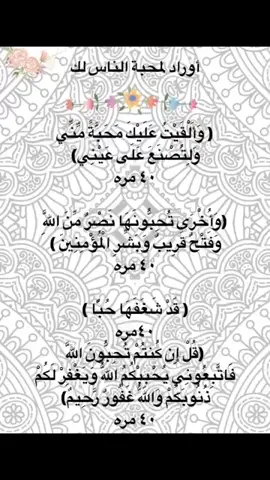 أوراد لمحبة الناس لك
( وَأَلْقَيْتُ عَلَيْكَ مَحَبَّةً مِّنِّي
وَلِتُصْنَعَ عَلَى عَيْنِي)
٤٠ مره
(وأُخْرَى تُحِبُّونَهَا نَصْرٌ مِّنَ اللَّهِ
وَفَتْحٌ قَرِيبٌ وَبَشِّرِ الْمُؤْمِنِينَ )
٤٠ مره
( قَدْ شَغَفَهَا حُبًّا )
٤٠مره
(قُلْ إِن كُنتُمْ تُحِبُّونَ اللَّهَ
فَاتَّبِعُونِي يُحْبِبْكُمُ اللَّهُ وَيَغْفِرْ لَكُمْ
ذُنُوبَكُمْ وَاللَّهُ غَفُورٌ رَّحِيمٌ)
٤٠ مره